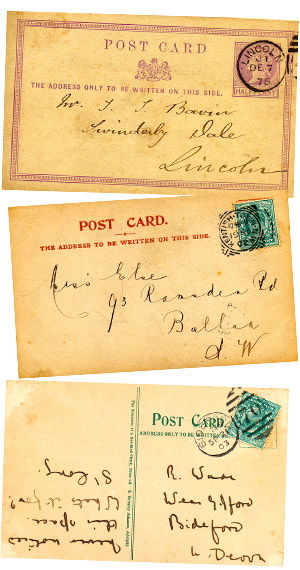 POST CARD
THE ADDRESS ONLY TO BE WRITTEN ON THIS SIDE.
LINCOLN
DE 7
76
HALF
Mr. T. T. Bavin
Swinderby Dale
Lincoln
POST CARD.
THE ADDRESS TO BE WRITTEN ON THIS SIDE.
Miss Else
93 Ramsden Rd
Balham
S. W
POST CARD.
ADDRESS ONLY TO BE WRITTEN
03
R. Wade
Bideford
N. Devon
Never noticed
this space.
What's it for?